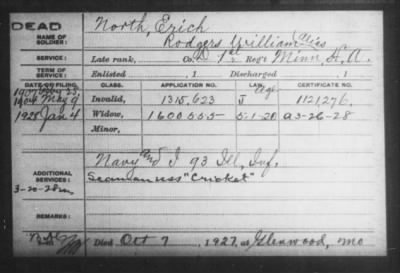 DEAD
NAME OF SOLDIER:
North, Erich
Rodgers William Alias
SERVICE:
Late rank, Co. D 1st Reg't Minn H. A.
TERM OF SERVICE:
Enlisted 1 Discharged 1
DATE OF FILING. CLASS. APPLICATION NO. LAW. CERTIFICATE NO.
1904 May 9 Invalid, 1315,623 J 1121,276.
1928 Jan 4 Widow, 1600555 5-1-20 A3-26-28
Minor,
ADDITIONAL SERVICES:
Navy and I 93 Ill. Inf.
Seaman USS "Cricket"
3-20-28
REMARKS:
Died Oct 7, 1927, at Glenwood, Mo